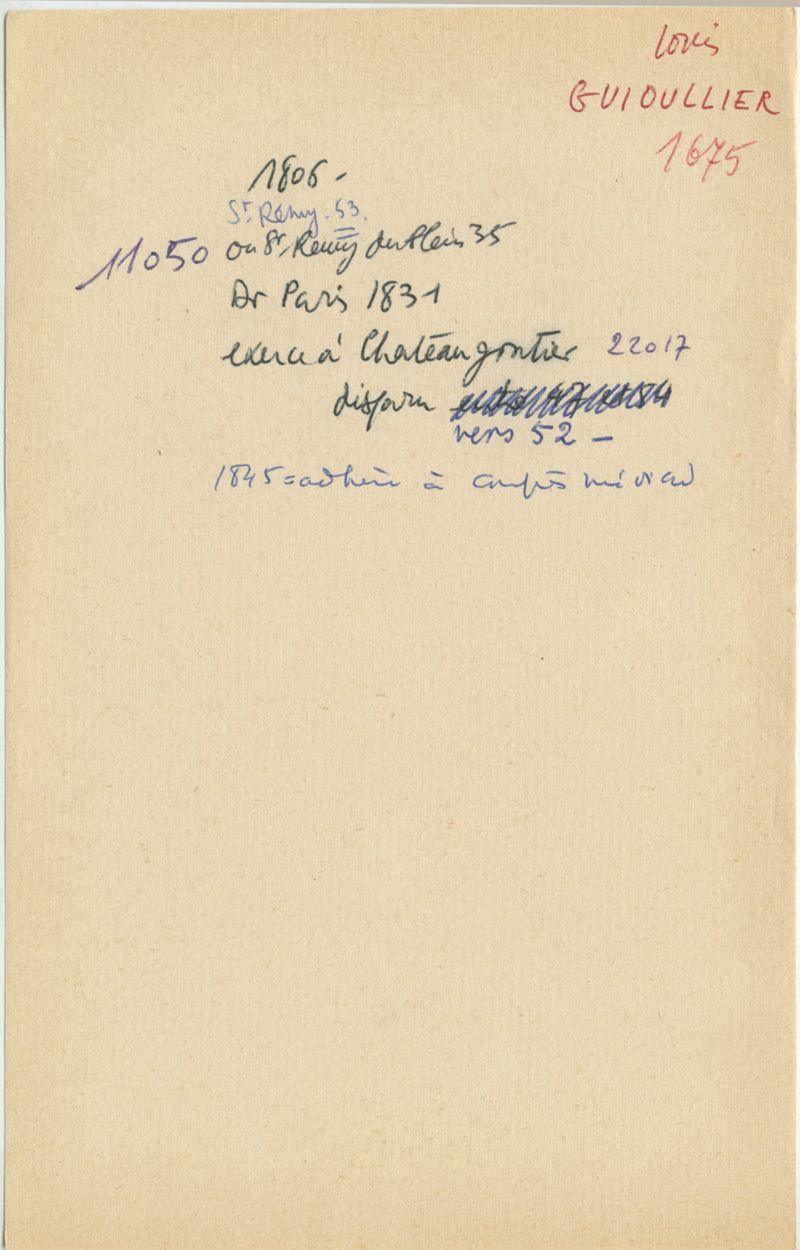 Louis
GUIOULLIER
1675
1806 -
St Rémy. 53.
11050 ou St. Remy du Plein 35
Dr Paris 1831
exerce à Chateaugontier 22017
disparu
vers 52 -
1845 = adhère à congrès médical